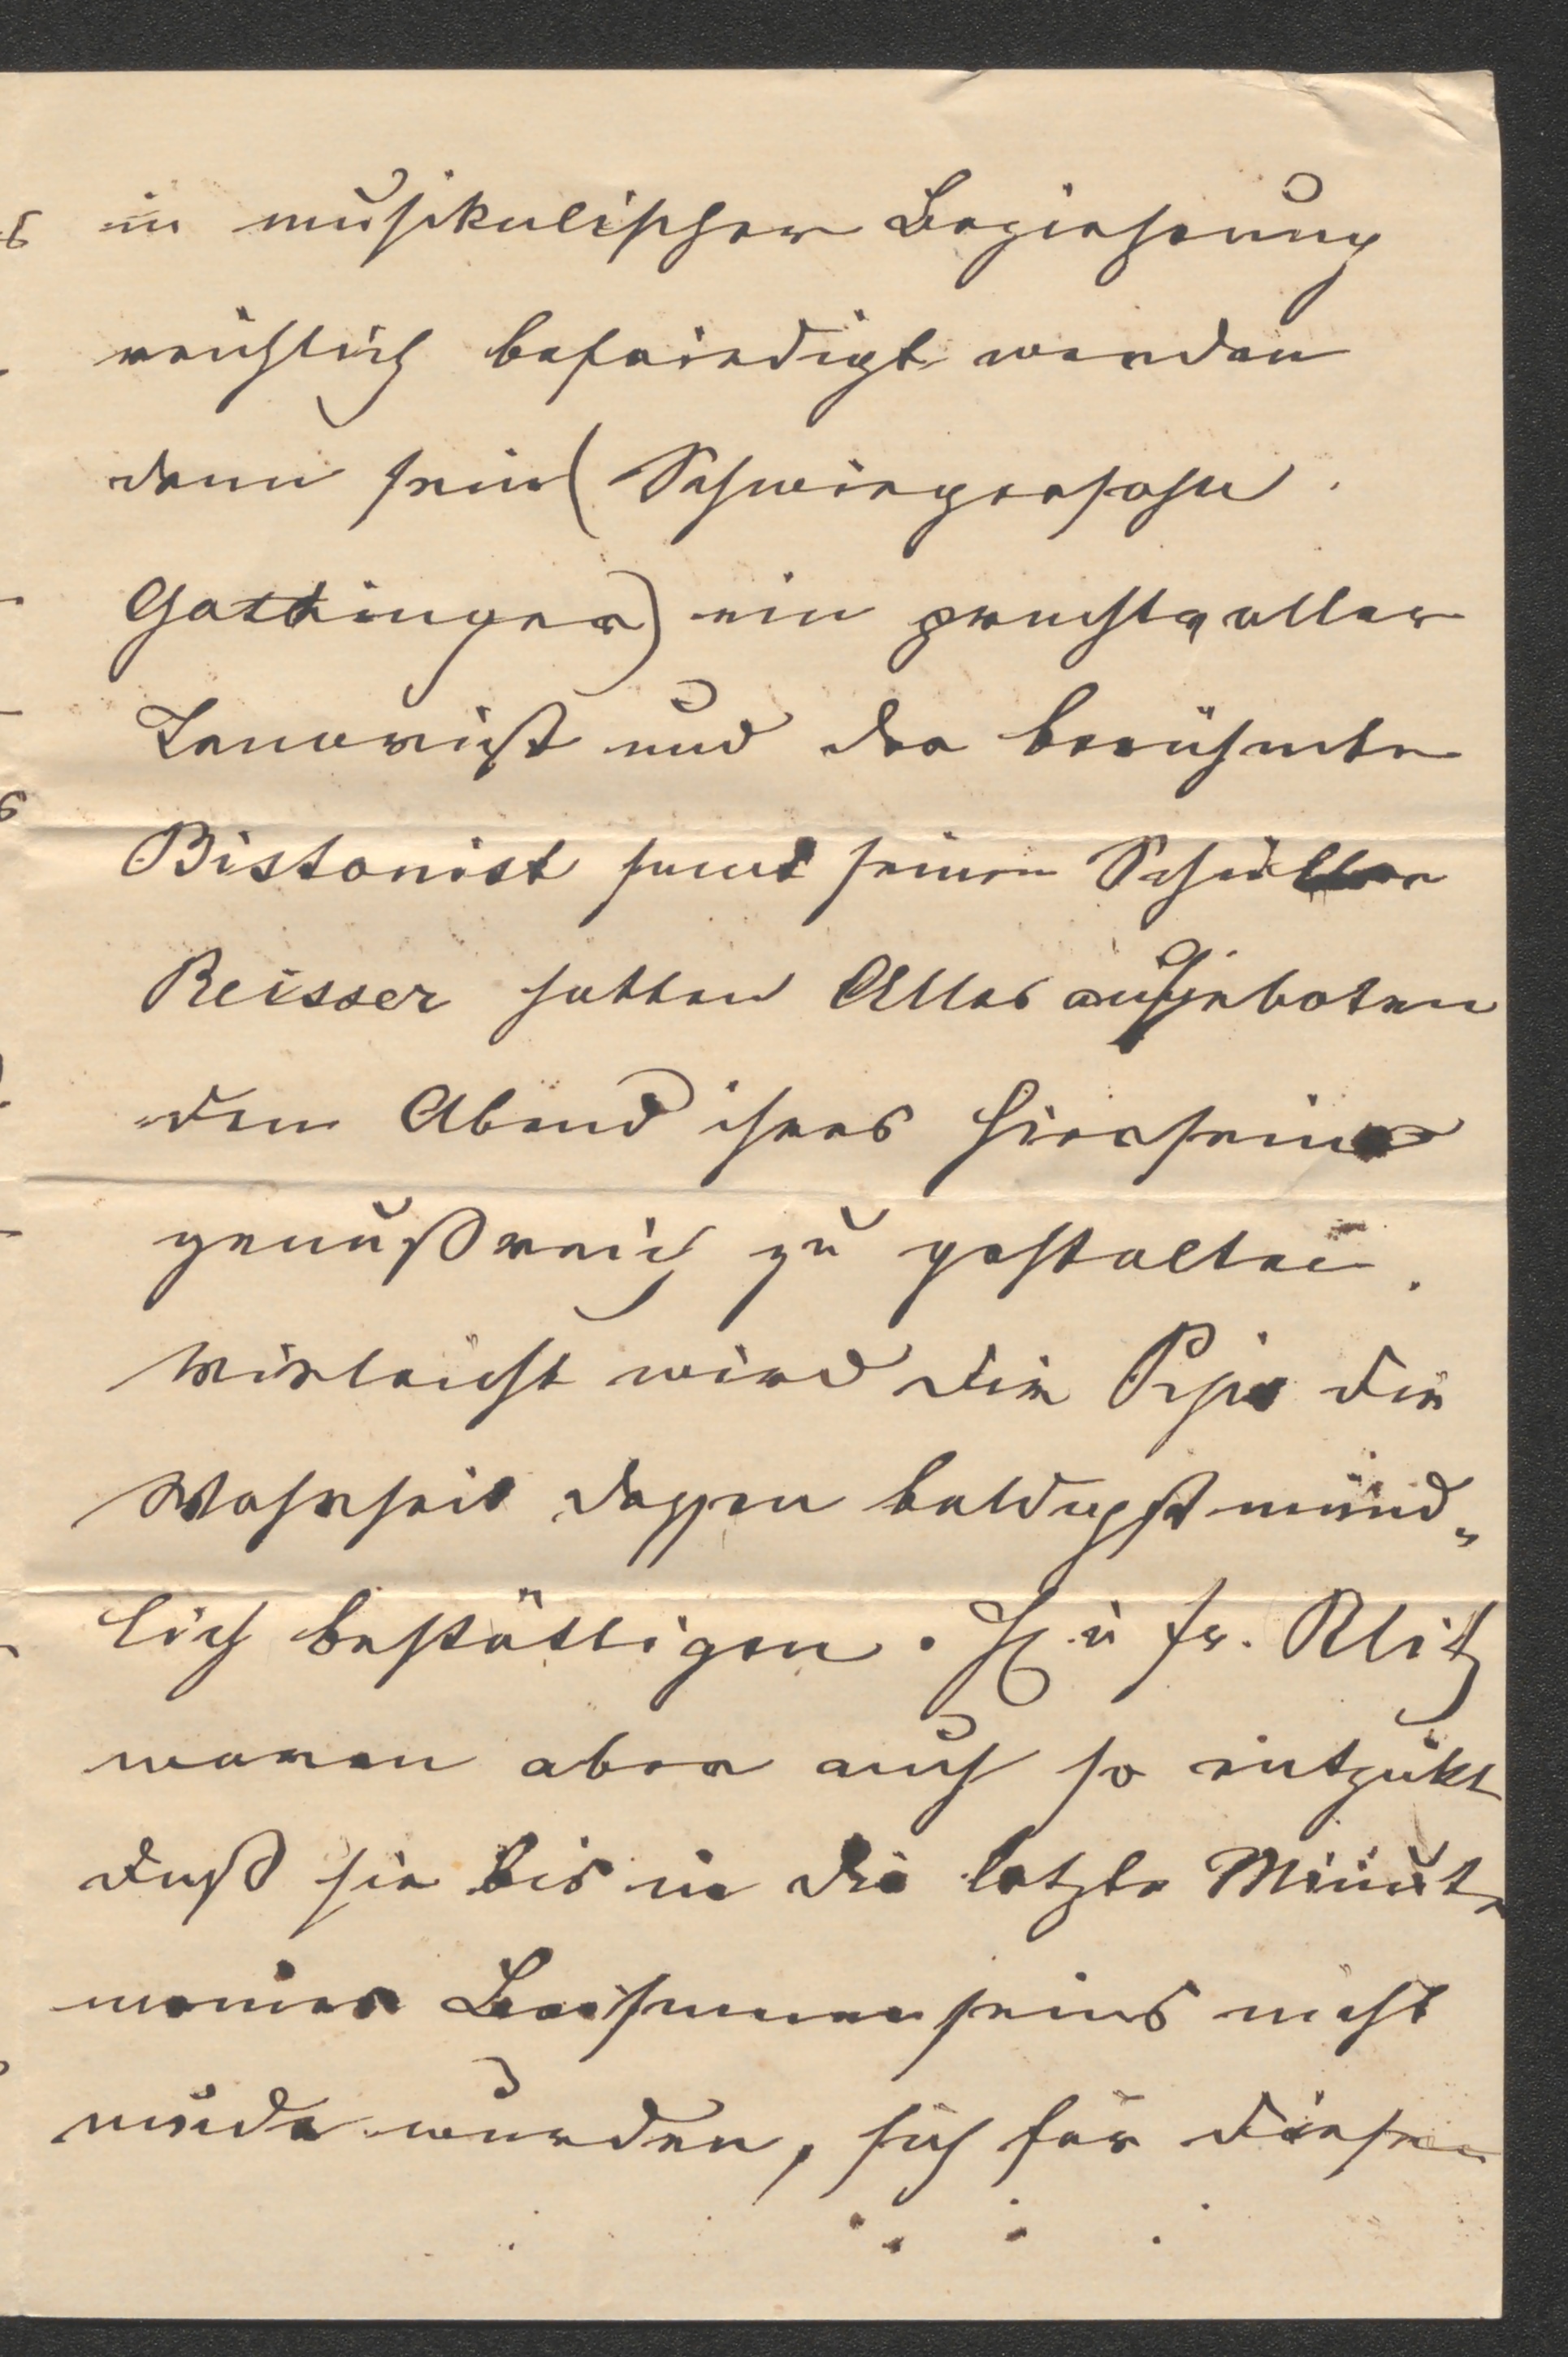 in musikalischer Beziehung
reichlich befriedigt werden
denn sein (Schwiegersohn
Gattinger) ein prachtvoller
Tenorist und der berühmte
Bistonist samt seinem Schüller
Reisser hatten Alles aufgeboten
den Abend ihres Hierseins
genußreich zu gestalten.
Vieleicht wird die Pepi die
Wahrheit dessen baldigst münd„
lich bestättigen. H u Fr. Klitz
waren aber auch so entzükt
daß sie bis in die letzte Minute
meines Beisammenseins nicht
müde wurden, sich für diesen